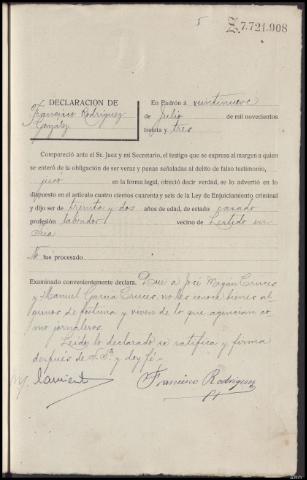 5
Z.7.721.908
DECLARACION DE
Francisco Rodríguez
González
En Padrón á veintinueve
de Julio de mil novecientos
treinta y tres
Compareció ante el Sr. Juez y mi Secretario, el testigo que se expresa al margen a quien
se enteró de la obligación de ser veraz y penas señaladas al delito de falso testimonio,
juró en la forma legal, ofreció decir verdad, se lo advertió en lo
dispuesto en el artículo cuatro cientos cuarenta y seis de la Ley de Enjuiciamiento criminal
y dijo ser de treinta y dos años de edad, de estado casado
profesión labrador vecino de Lestido en
No fue procesado
Examinado convenientemente declara. Que a José Magan Cruces
y Manuel Garcia Cruces, no les conoce bienes al
gunos de fortuna y viven de lo que agencian co
mo jornaleros.
Leido lo declarado se ratifica y firma
después de S.Sª y doy fé.
Francisco Rodriguez